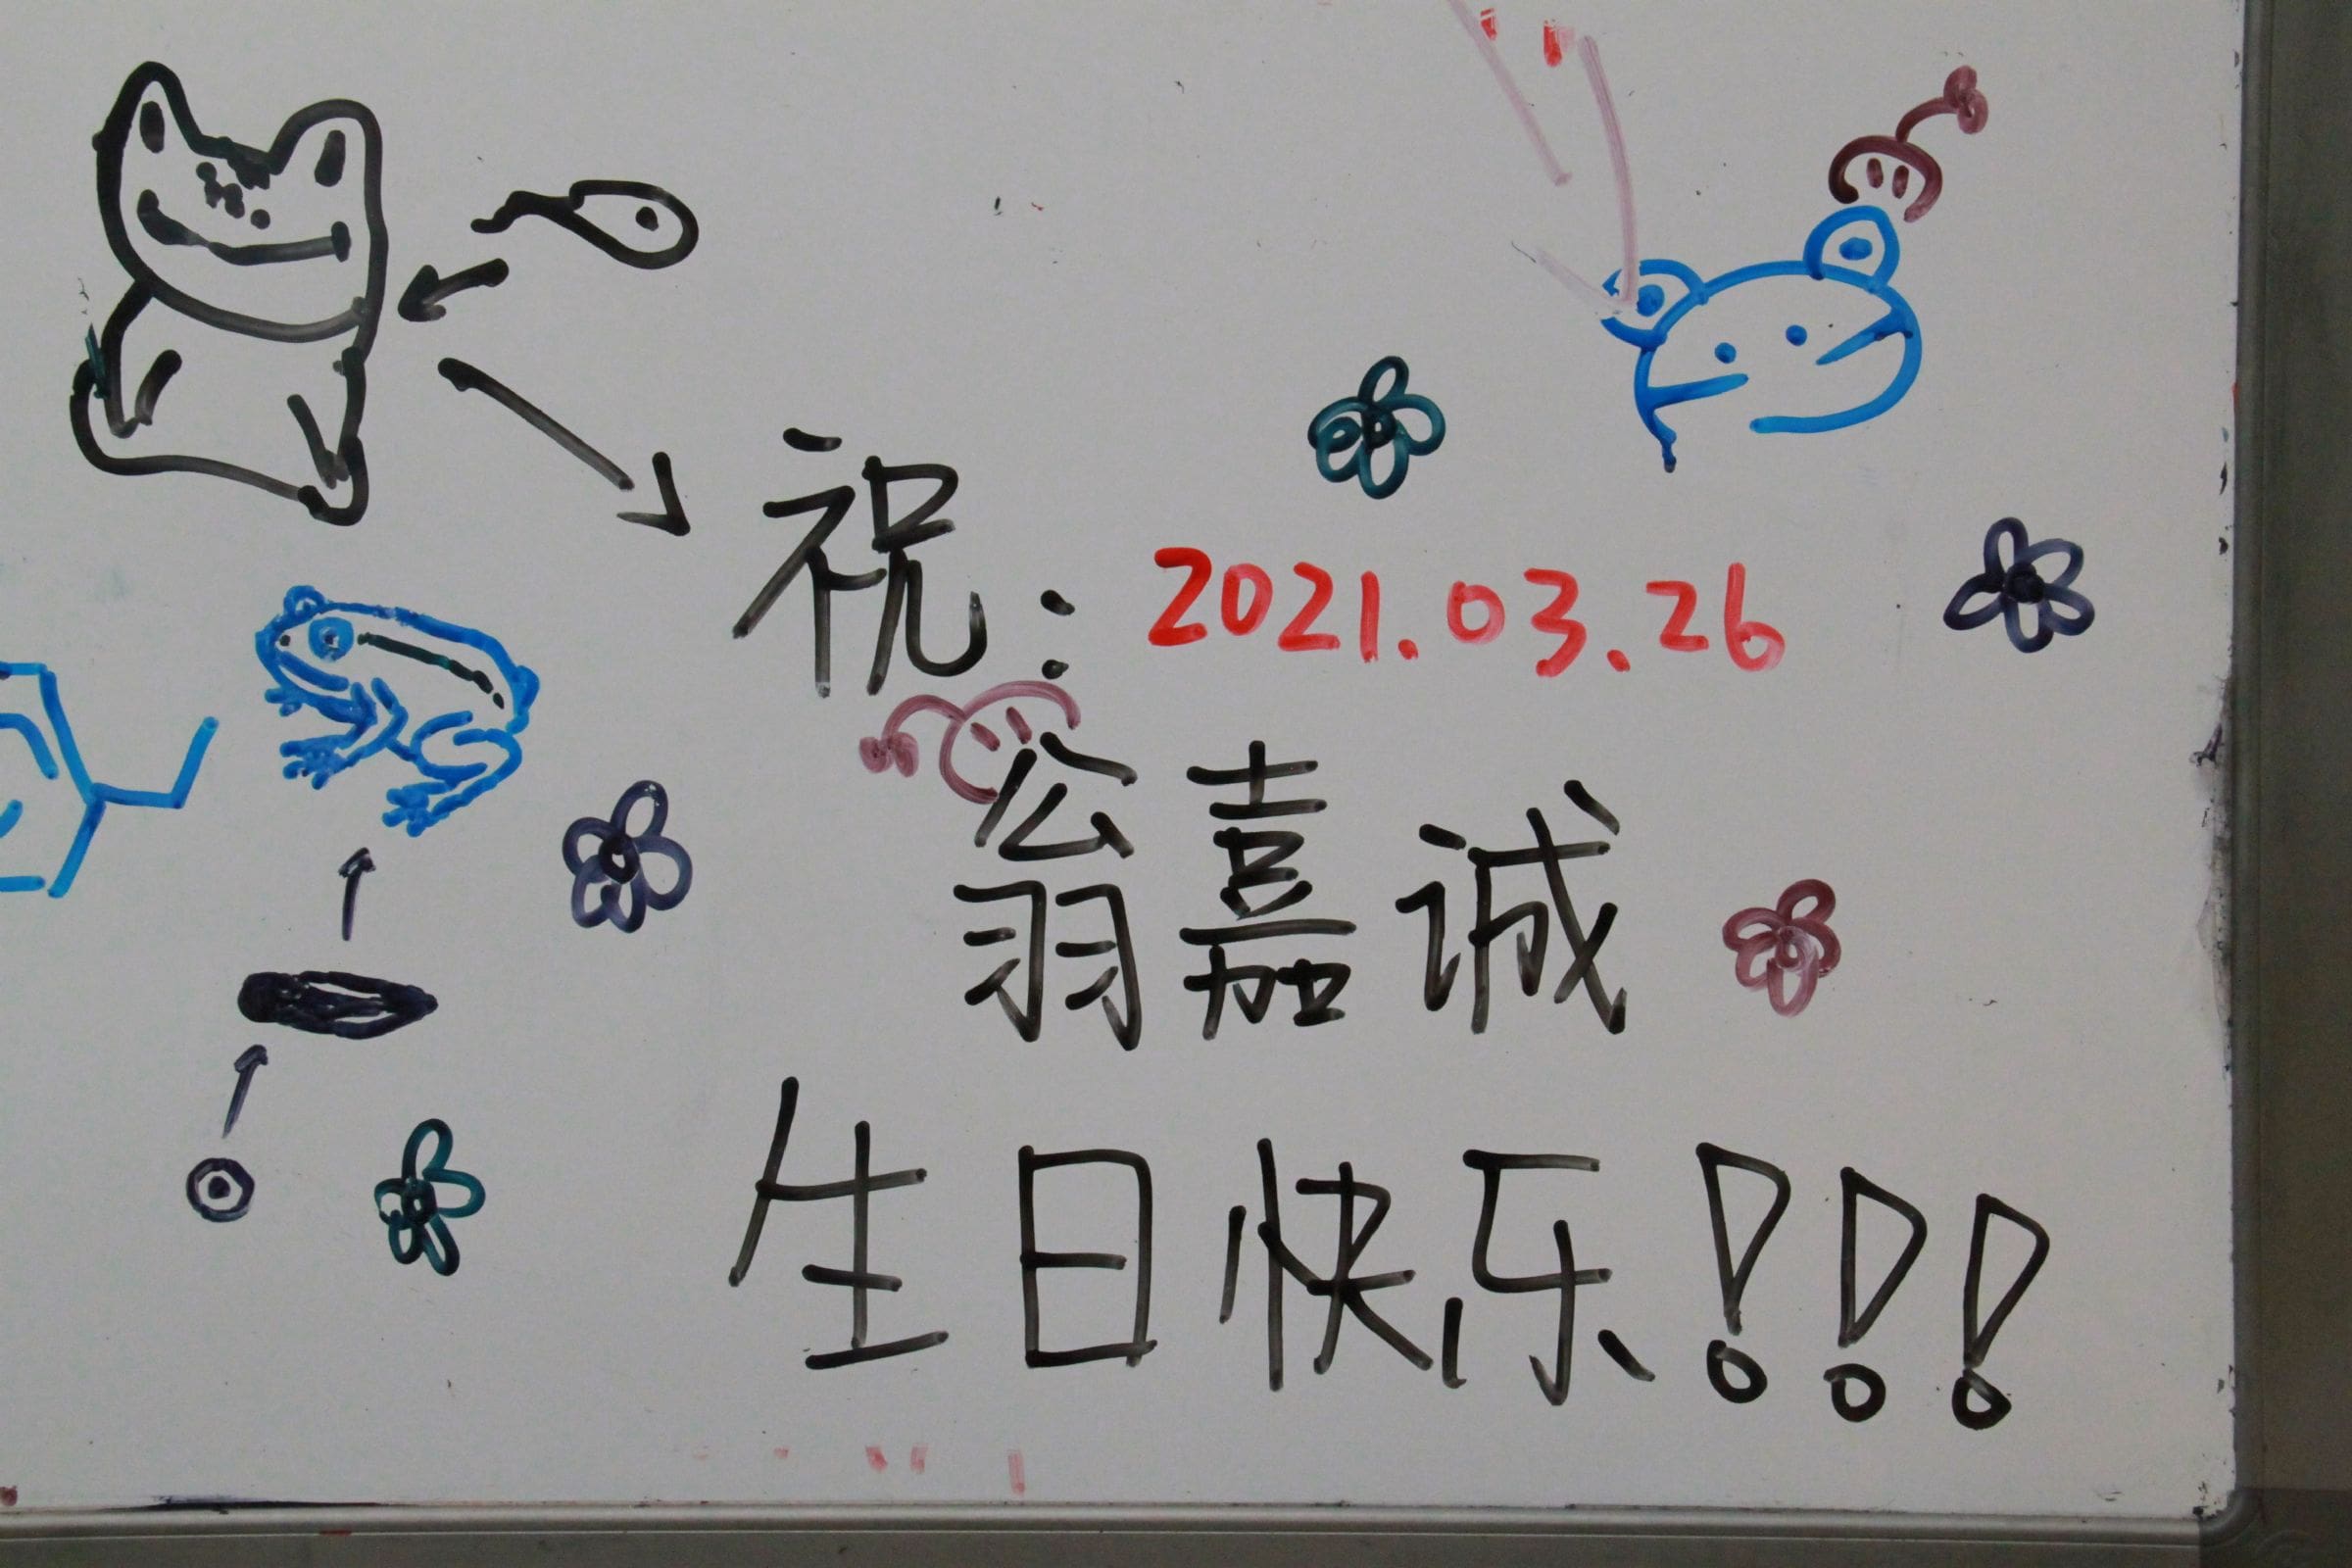 祝：2021.03.26
翁嘉诚
生日快乐！！！